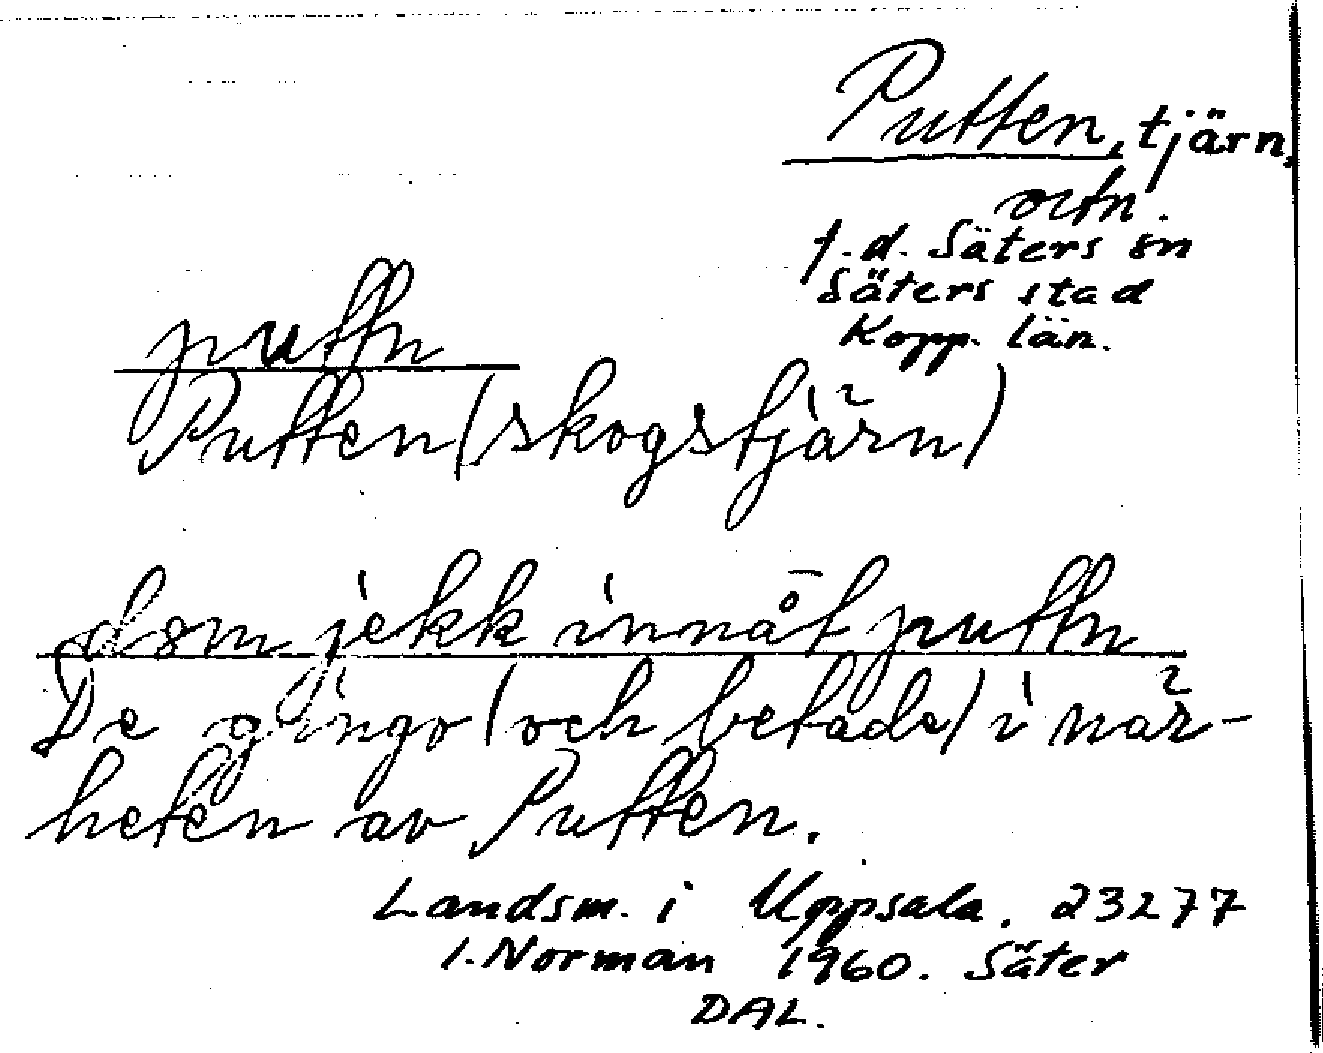 Putten, tjärn,
ortn.
f.d. Säters sn
Säters stad
Kopp. län.
puttn
Putten (skogstjärn)
dsm jekk innåt puttn
De gingo (och betade) i när-
heten av Putten.
Landsm. i Uppsala. 23277
I. Norman 1960. Säter
DAL.